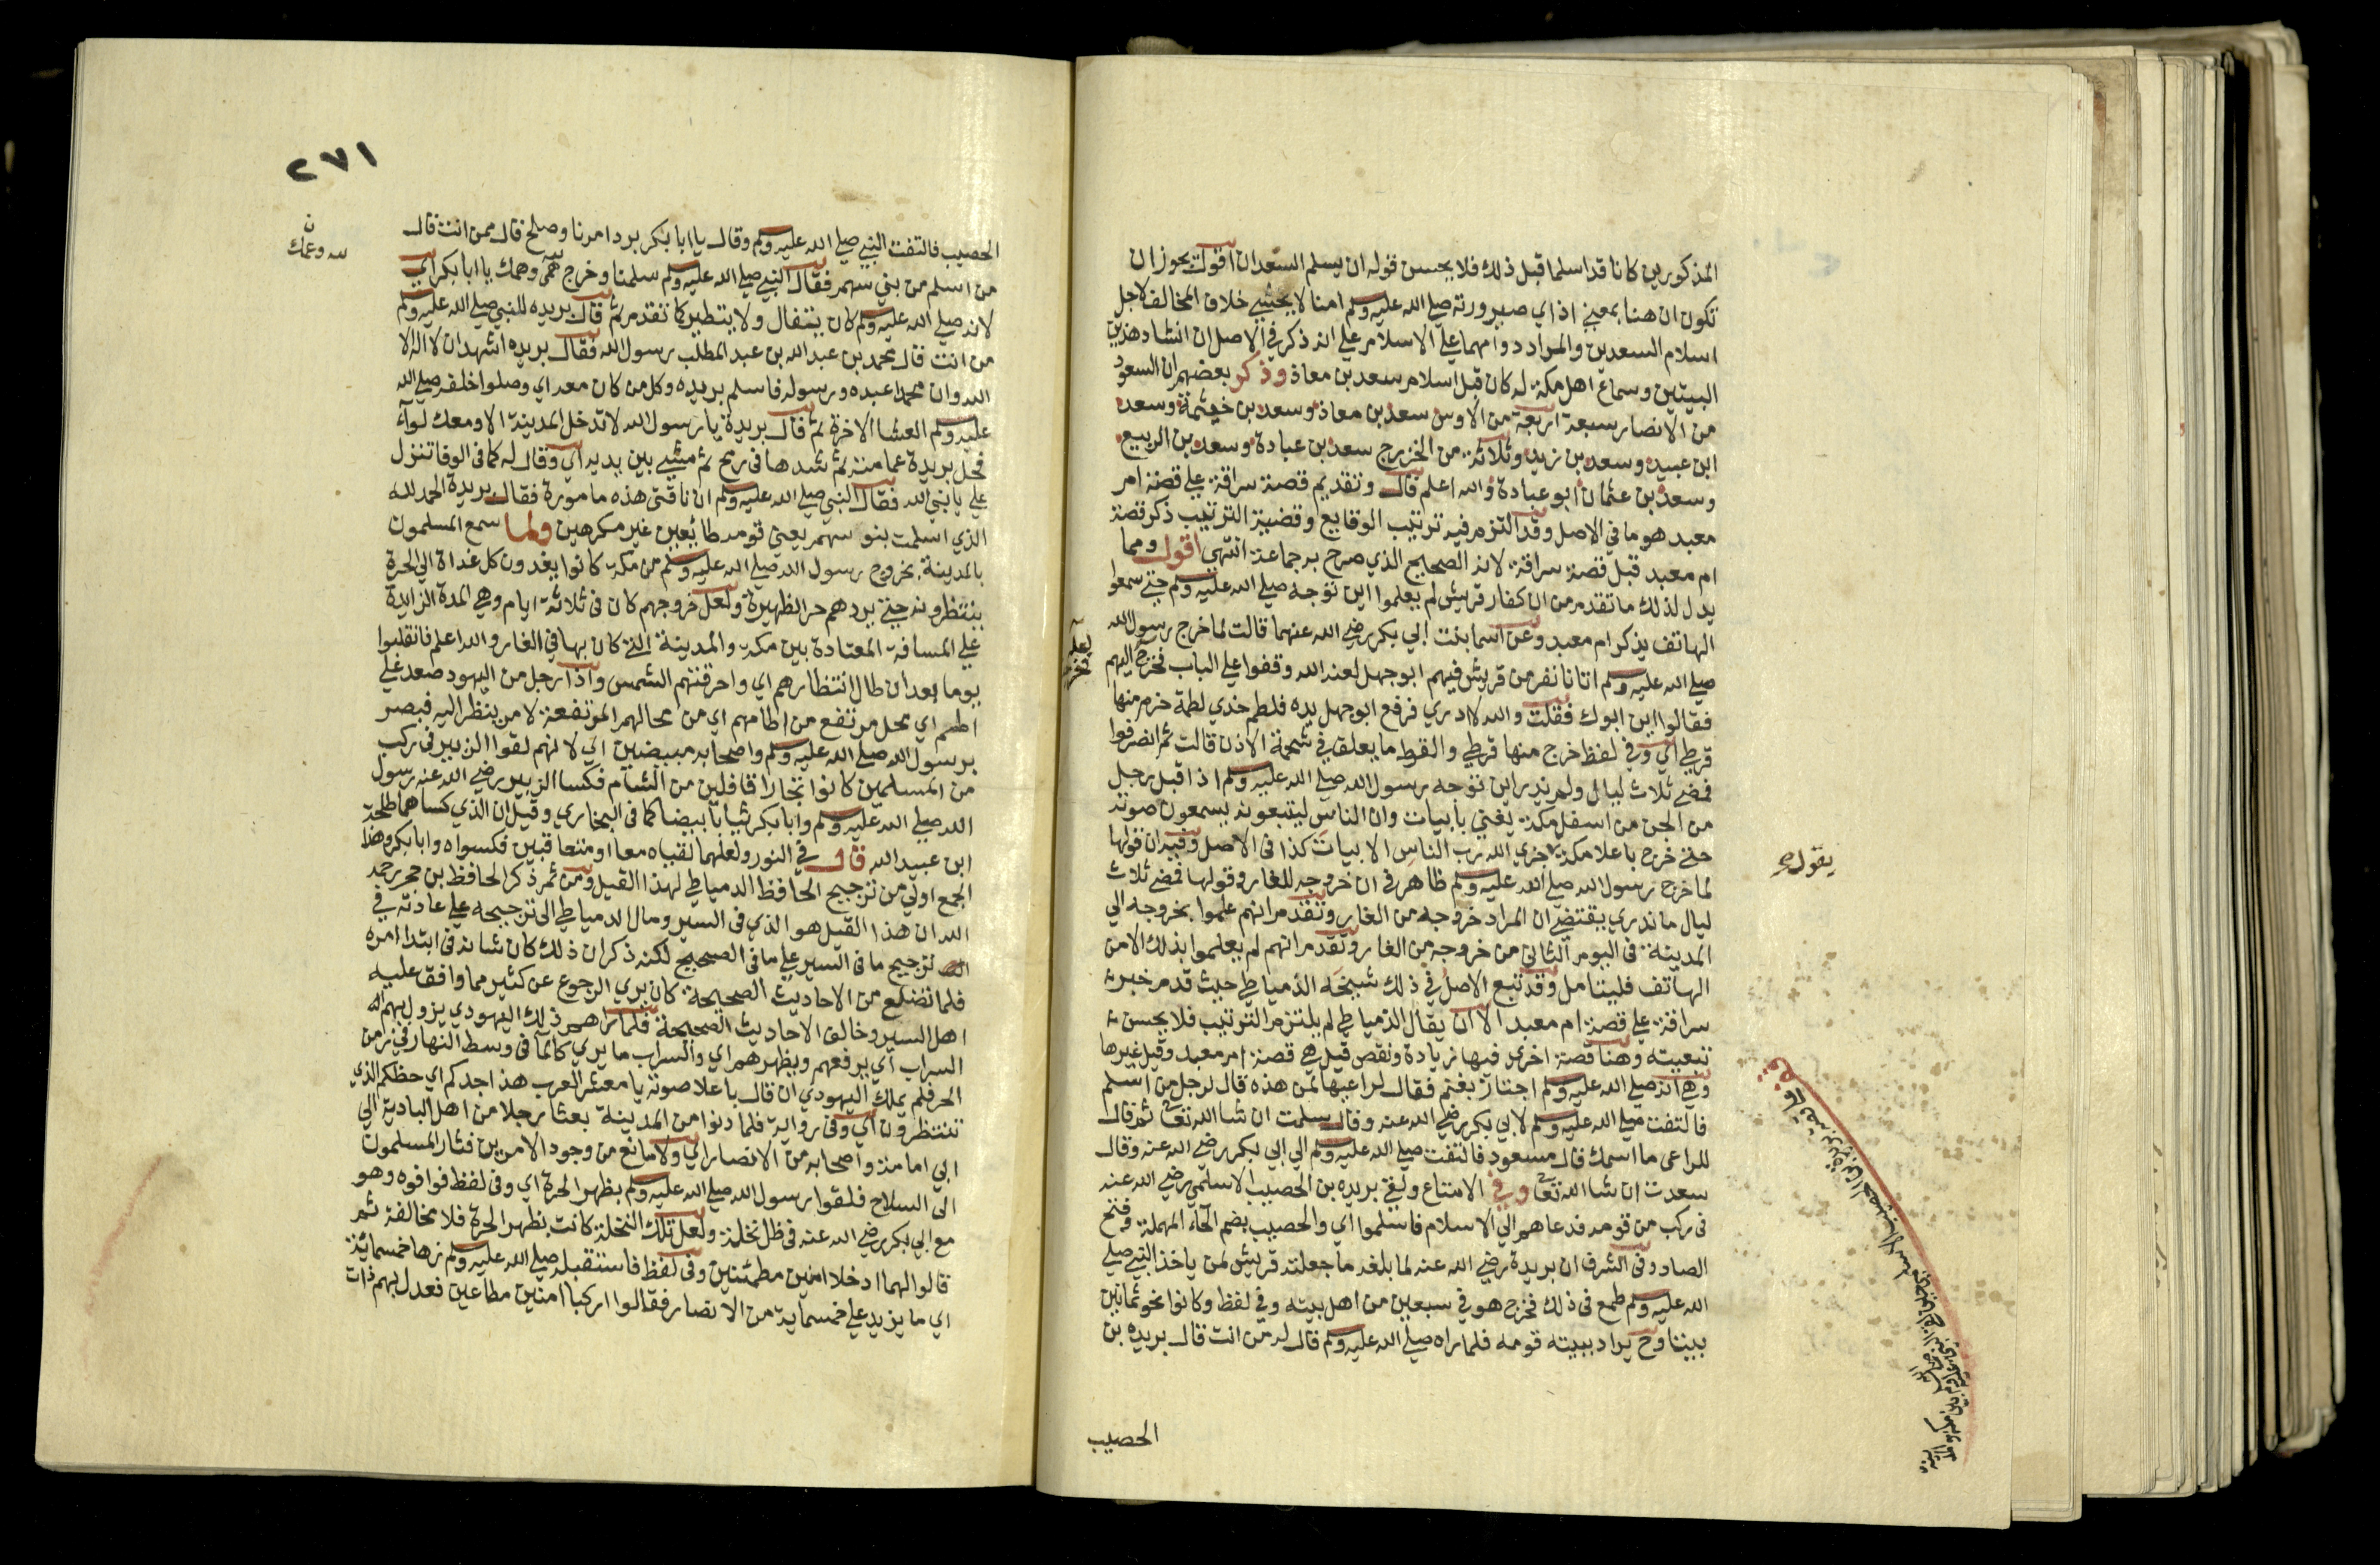 المذكورين كانا قد اسلما قبل ذلك فلا يحسن قوله ان يسلم السعدان اقول يجوز ان
تكون ان هنا بمعني اذ اي صيرورته صلي الله عليه وسلم امنا لا يخشي خلاف المخالف لاجل
اسلام السعدين والمراد دوامهما علي الاسلام علي انه ذكر في الاصل ان انشاد هذين
البيتين وسماع اهل مكة له كان قبل اسلام سعد بن معاذ وذكر بعضهم ان السعود
من الانصار سبعة اربعة من الاوس سعد بن معاذ وسعد بن خيثمة وسعد
ابن عبيد وسعد بن زيد وثلاثة من الخزرج سعد بن عبادة وسعد بن الربيع
وسعد بن عثمان ابو عبادة والله اعلم قال وتقديم قصة سراقة علي قصة ام
معبد هو ما في الاصل وقد التزم فيه ترتيب الوقايع وقضية الترتيب ذكر قصة
ام معبد قبل قصة سراقة لانه الصحيح الذي صرح به جماعة انتهي اقول ومما
يدل لذلك ما تقدم من ان كفار قريش لم يعلموا اين توجه صلي الله عليه وسلم حتي سمعوا
الهاتف يذكر ام معبد وعن اسما بنت ابي بكر رضي الله عنهما قالت لما خرج رسول الله
صلي الله عليه وسلم اتانا نفر من قريش فيهم ابو جهل لعنه الله وقفوا علي الباب فخرج اليهم
لعله فخرجت
فقالوا اين ابوك فقلت والله لا ادري فرفع ابو جهل يده فلطم خدي لطمة خرم منها
قرطي اي وفي لفظ خرج منها قرطي والقرط ما يعلق في شحمة الاذن قالت ثم انصرفوا
فمضي ثلاث ليال ولم ندر اين توجه رسول الله صلي الله عليه وسلم اذ اقبل رجل
من الجن من اسفل مكة يغني بابيات وان الناس ليتبعونه يسمعون صوته
حتي خرج باعلا مكة جزي الله رب الناس الابيات كذا في الاصل وفيه ان قولها
يقول
لما خرج رسول الله صلي الله عليه وسلم ظاهر في ان خروجه للغار وقولها فمضي ثلاث
ليال ما ندري يقتضي ان المراد خروجه من الغار وتقدم انهم علموا بخروجه الي
المدينة في اليوم الثاني من خروجه من الغار وتقدم انهم لم يعلموا بذلك الا من
الهاتف فليتامل وقد تبع الاصل في ذلك شيخه الدمياطي حيث قدم خبر
سراقة علي قصة ام معبد الا ان يقال الدمياطي لم يلتزم الترتيب فلا يحسن
تبعيته وهنا قصة اخري فيها زيادة ونقص قيل هي قصة ام معبد وقيل غيرها
وهي انه صلي الله عليه وسلم اجتاز بغنم فقال لراعيها لمن هذه قال لرجل من اسلم
فالتفت صلي الله عليه وسلم لابي بكر رضي الله عنه وقال سلمت ان شا الله تعالي ثم قال
للراعي ما اسمك قال مسعود فالتفت صلي الله عليه وسلم الي ابي بكر رضي الله عنه وقال
سعدت ان شا الله تعالي وفي الامتاع ولقي بريده بن الحصيب الاسلمي رضي الله عنه
في ركب من قومه فدعاهم الي الاسلام فاسلموا اي والحصيب بضم الحاء المهملة وفتح
الصاد وفي الشرف ان بريدة رضي الله عنه لما بلغه ما جعلته قريش لمن ياخذ النبي صلي
الله عليه وسلم طمع في ذلك فخرج هو في سبعين من اهل بيته وفي لفظ وكانوا نحو ثمانين
بيتا وح يراد ببيته قومه فلما راه صلي الله عليه وسلم قال له من انت قال بريده بن
الحصيب
٢٧١
الحصيب فالتفت النبي صلي الله عليه وسلم وقال يا ابا بكر برد امرنا وصلح قال ممن انت قال
من اسلم من بني سهم فقال النبي صلي الله عليه وسلم سلمنا وخرج سهمك يا ابا بكر اي
لانه صلي الله عليه وسلم كان يتفال ولا يتطير كما تقدم ثم قال بريده للنبي صلي الله عليه وسلم
من انت قال محمد بن عبد الله بن عبد المطلب رسول الله فقال بريده اشهد ان لا اله الا
الله وان محمدا عبده ورسوله فاسلم بريده وكل من كان معه اي وصلوا خلفه صلي الله
عليه وسلم العشا الاخرة ثم قال بريدة يا رسول الله لا تدخل المدينة الا ومعك لوآء
فحل بريدة عمامته ثم شدها في رمح ثم مشي بين يديه اي وقال له كما في الوفا تنزل
علي يا نبي الله فقال النبي صلي الله عليه وسلم ان ناقتي هذه مامورة فقال بريدة الحمد لله
الذي اسلمت بنو سهم يعني قومه طائعين غير مكرهين ولما سمع المسلمون
بالمدينة بخروج رسول الله صلي الله عليه وسلم من مكة كانوا يغدون كل غداة الي الحرة
ينتظرونه حتي يردهم حر الظهيرة ولعل خروجهم كان في ثلاثة ايام وهي المدة الزايدة
علي المسافة المعتادة بين مكة والمدينة التي كان بها في الغار والله اعلم فانقلبوا
يوما بعد ان طال انتظارهم اي واحرقتهم الشمس واذا رجل من اليهود صعد علي
اطم اي محل مرتفع من اطامهم اي من محالهم المرتفعة لامر ينظر اليه فبصر
برسول الله صلي الله عليه وسلم واصحابه مبيضين اي لانهم لقوا الزبير في ركب
من المسلمين كانوا تجارا قافلين من الشام فكسا الزبير رضي الله عنه رسول
الله صلي الله عليه وسلم وابا بكر ثيابا بيضا كما في البخاري وقيل ان الذي كساهما طلحة
ابن عبيد الله قال في النور ولعلهما لقياه معا او متعاقبين فكسواه وابا بكر وهذا
الجمع اولي من ترجيح الحافظ الدمياطي لهذا القيل ومن ثم ذكر الحافظ بن حجر رحمه
الله ان هذا القيل هو الذي في السير ومال الدمياطي الي ترجيحه علي عادته في
ترجيح ما في السير علي ما في الصحيح لكنه ذكر ان ذلك كان شانه في ابتدا امره
فلما تضلع من الاحاديث الصحيحة كان يري الرجوع عن كثير مما وافق عليه
اهل السير وخالف الاحاديث الصحيحة فلما راهم ذلك اليهودي يزول بهم
السراب اي يرفعهم ويظهرهم اي والسراب ما يري كالما في وسط النهار في زمن
الحر فلم يملك اليهودي ان قال باعلا صوته يا معشر العرب هذا جدكم اي حظكم الذي
تنتظرون اي وفي رواية فلما دنوا من المدينة بعثا رجلا من اهل البادية الي
ابي امامة واصحابه من الانصار اي ولا مانع من وجود الامرين فثار المسلمون
الي السلاح فلقوا رسول الله صلي الله عليه وسلم بظهر الحرة اي وفي لفظ فوافوه وهو
مع ابي بكر رضي الله عنه في ظل نخلة ولعل تلك النخلة كانت بظهر الحرة فلا مخالفة ثم
قالوا لهما ادخلا امنين مطمئنين وفي لفظ فاستقبله صلي الله عليه وسلم زها خمسمائة
اي ما يزيد علي خمسماية من الانصار فقالوا اركبا امنين مطاعين فعدل بهم ذات